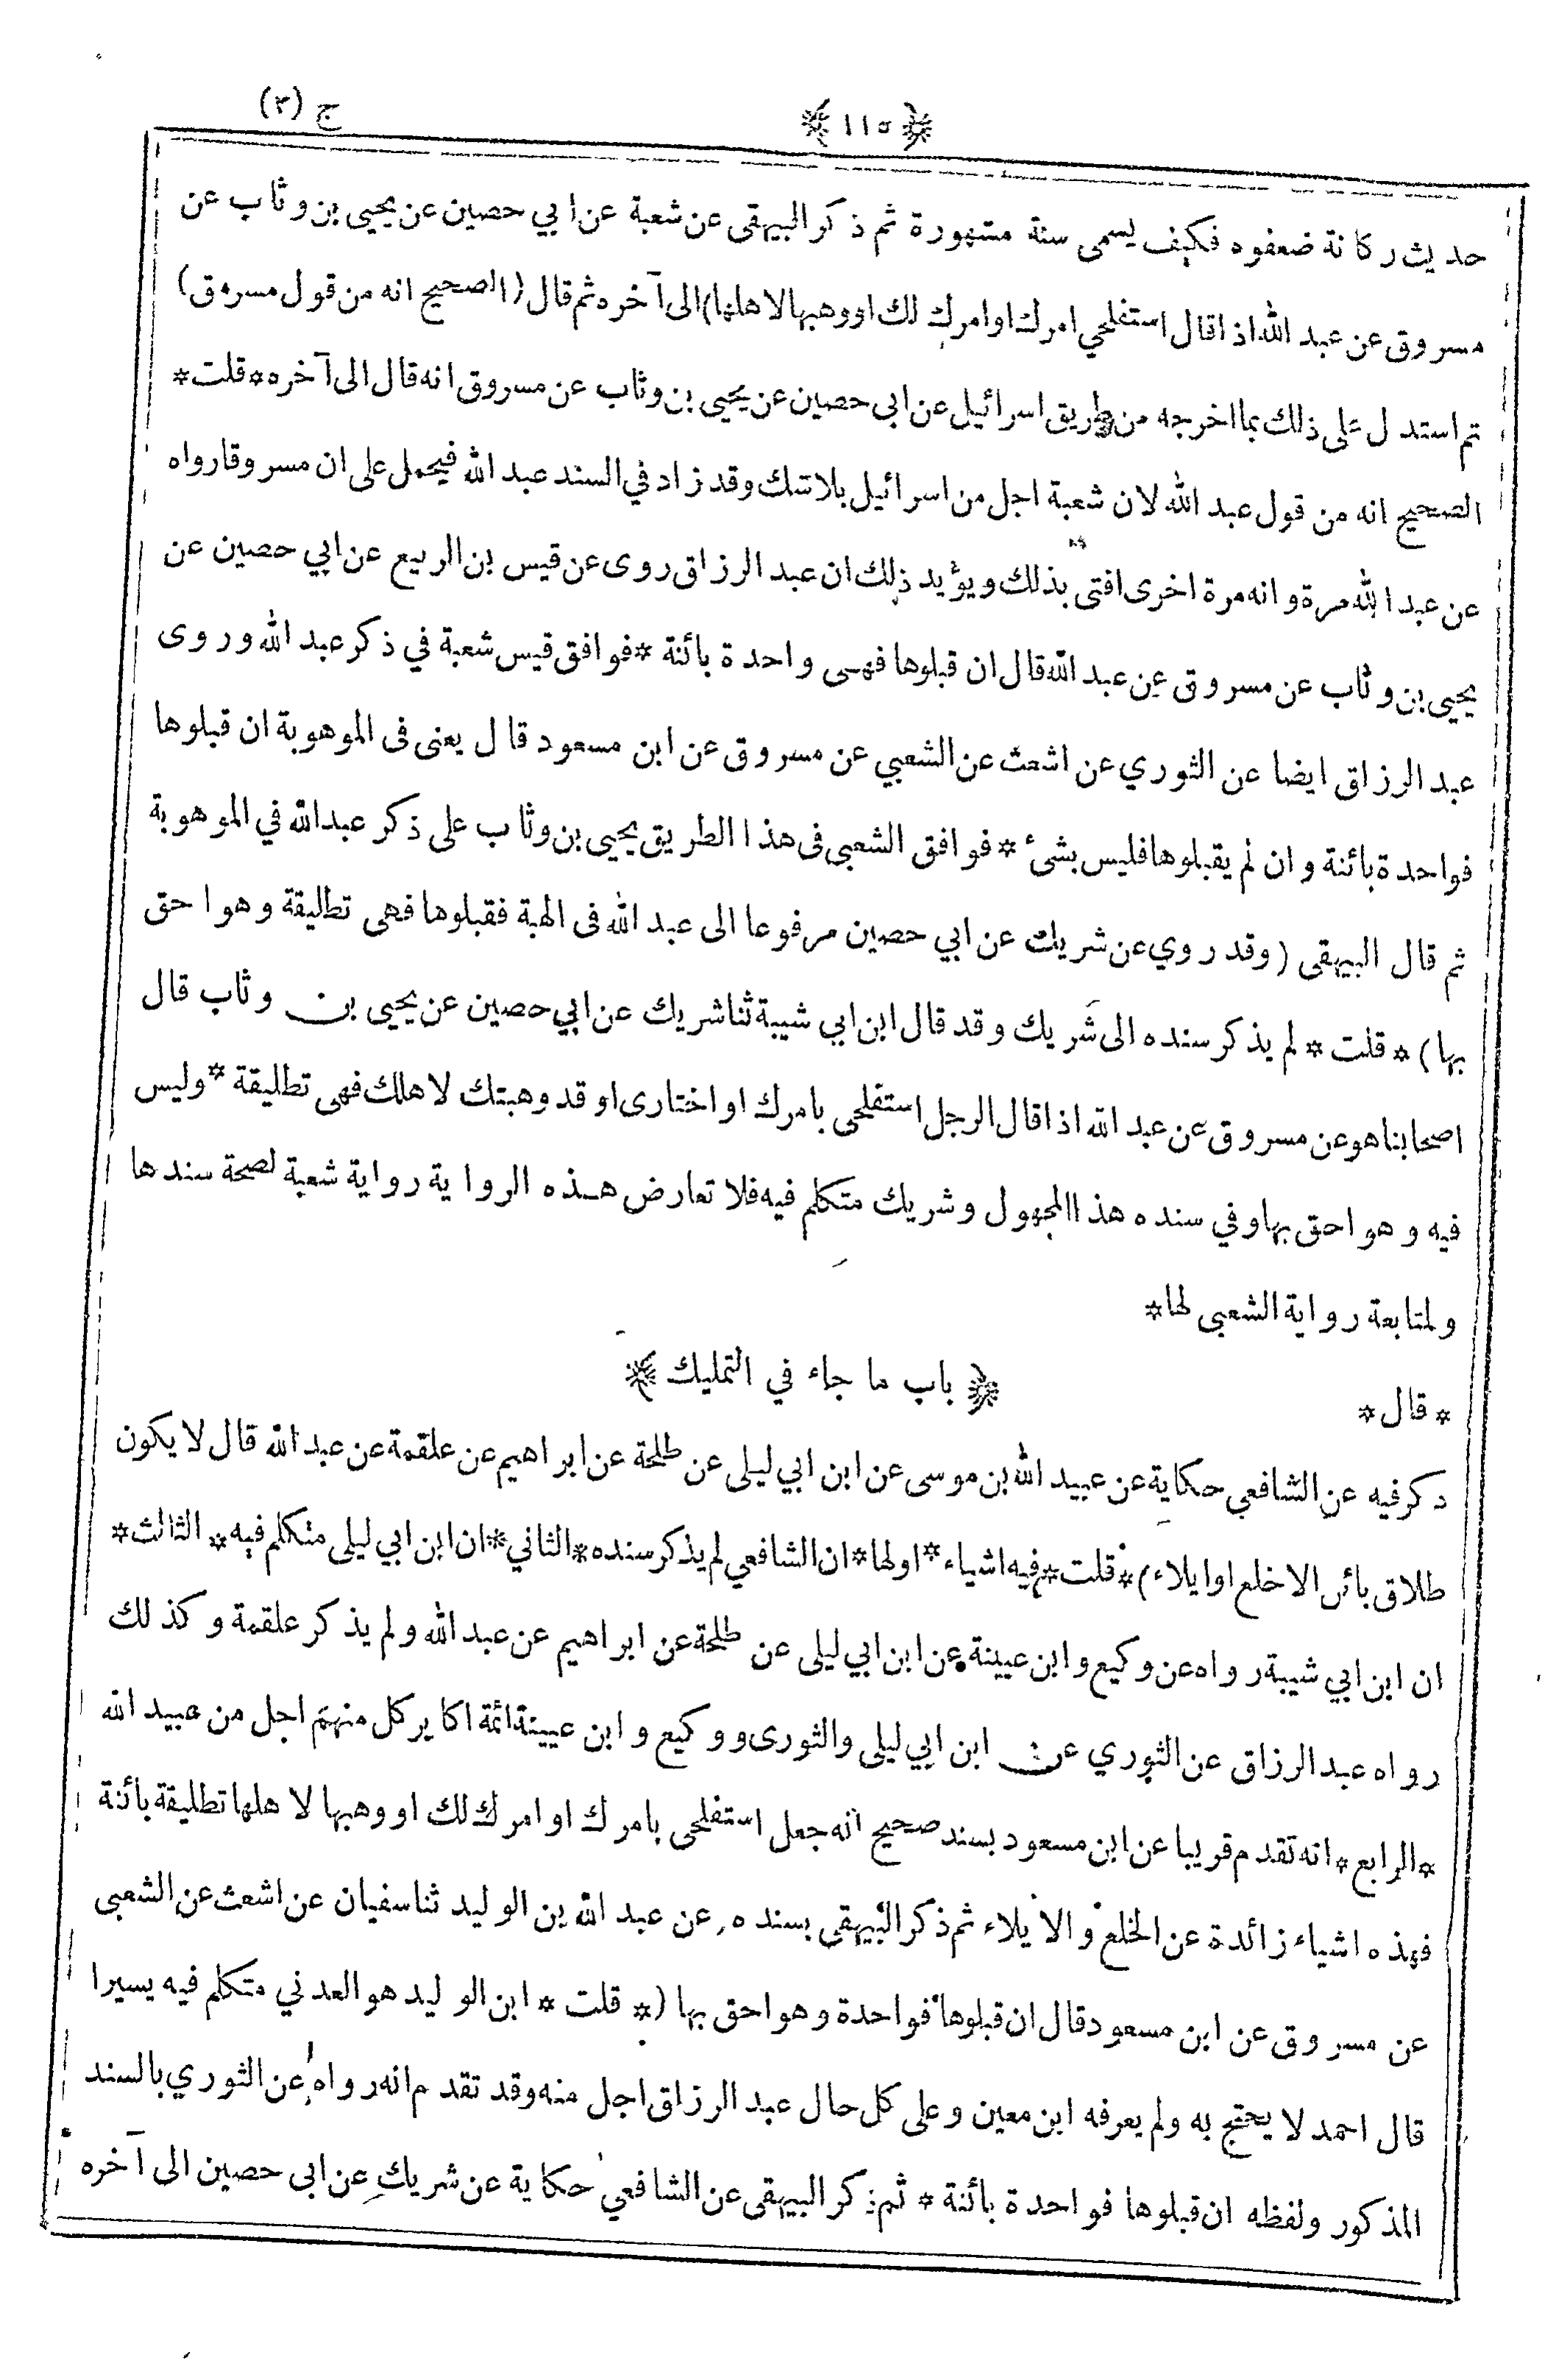 ﴿ ١١٥ ﴾ ج (٣)
حديث ركانة ضعفوه فكيف يسمى سنة مشهورة ثم ذكر البيهقى عن شعبة عن ابي حصين عن يحيى بن وثاب عن
مسروق عن عبد الله اذا قال استفلحي امرك او امرك لك او وهبها لاهلها) الى آخره ثم قال (الصحيح انه من قول مسروق)
ثم استدل على ذلك بما اخرجه من طريق اسرائيل عن ابي حصين عن يحيى بن وثاب عن مسروق انه قال الى آخره * قلت *
الصحيح انه من قول عبد الله لان شعبة اجل من اسرائيل بلا شك وقد زاد في السند عبد الله فيحمل على ان مسروقا رواه
عن عبد الله مرة وانه مرة اخرى افتى بذلك ويؤيد ذلك ان عبد الرزاق روى عن قيس بن الربيع عن ابي حصين عن
يحيى بن وثاب عن مسروق عن عبد الله قال ان قبلوها فهى واحدة بائنة * فوافق قيس شعبة في ذكر عبد الله وروى
عبد الرزاق ايضا عن الثوري عن اشعث عن الشعبي عن مسروق عن ابن مسعود قال يعنى فى الموهوبة ان قبلوها
فواحدة بائنة وان لم يقبلوها فليس بشئ * فوافق الشعبى فى هذا الطريق يحيى بن وثاب على ذكر عبد الله في الموهوبة
ثم قال البيهقى (وقد روي عن شريك عن ابي حصين مرفوعا الى عبد الله فى الهبة فقبلوها فهى تطليقة وهو احق
بها) * قلت * لم يذكر سنده الى شريك وقد قال ابن ابي شيبة ثنا شريك عن ابي حصين عن يحيى بن وثاب قال
اصحابنا هو عن مسروق عن عبد الله اذا قال الرجل استفلحى بامرك او اختارى او قد وهبتك لاهلك فهى تطليقة * وليس
فيه وهو احق بها وفي سنده هذا المجهول وشريك متكلم فيه فلا تعارض هذه الرواية رواية شعبة لصحة سندها
ولمتابعة رواية الشعبى لها *
﴿ باب ما جاء في التمليك ﴾
* قال *
ذكر فيه عن الشافعي حكاية عن عبيد الله بن موسى عن ابن ابي ليلى عن طلحة عن ابراهيم عن علقمة عن عبد الله قال لا يكون
طلاق بائن الا خلع او ايلاء) * قلت * فيه اشياء * اولها * ان الشافعي لم يذكر سنده * الثاني * ان ابن ابي ليلى متكلم فيه * الثالث *
ان ابن ابي شيبة رواه عن وكيع وابن عيينة عن ابن ابي ليلى عن طلحة عن ابراهيم عن عبد الله ولم يذكر علقمة وكذلك
رواه عبد الرزاق عن الثوري عن ابن ابي ليلى والثورى ووكيع وابن عيينة ائمة اكابر كل منهم اجل من عبيد الله
* الرابع * انه تقدم قريبا عن ابن مسعود بسند صحيح انه جعل استفلحى بامرك او امرك لك او وهبها لاهلها تطليقة بائنة
فهذه اشياء زائدة عن الخلع والايلاء ثم ذكر البيهقى بسنده عن عبد الله بن الوليد ثنا سفيان عن اشعث عن الشعبى
عن مسروق عن ابن مسعود قال ان قبلوها فواحدة وهو احق بها (* قلت * ابن الوليد هو العدني متكلم فيه يسيرا
قال احمد لا يحتج به ولم يعرفه ابن معين وعلى كل حال عبد الرزاق اجل منه وقد تقدم انه رواه عن الثوري بالسند
المذكور ولفظه ان قبلوها فواحدة بائنة * ثم ذكر البيهقى عن الشافعي حكاية عن شريك عن ابى حصين الى آخره